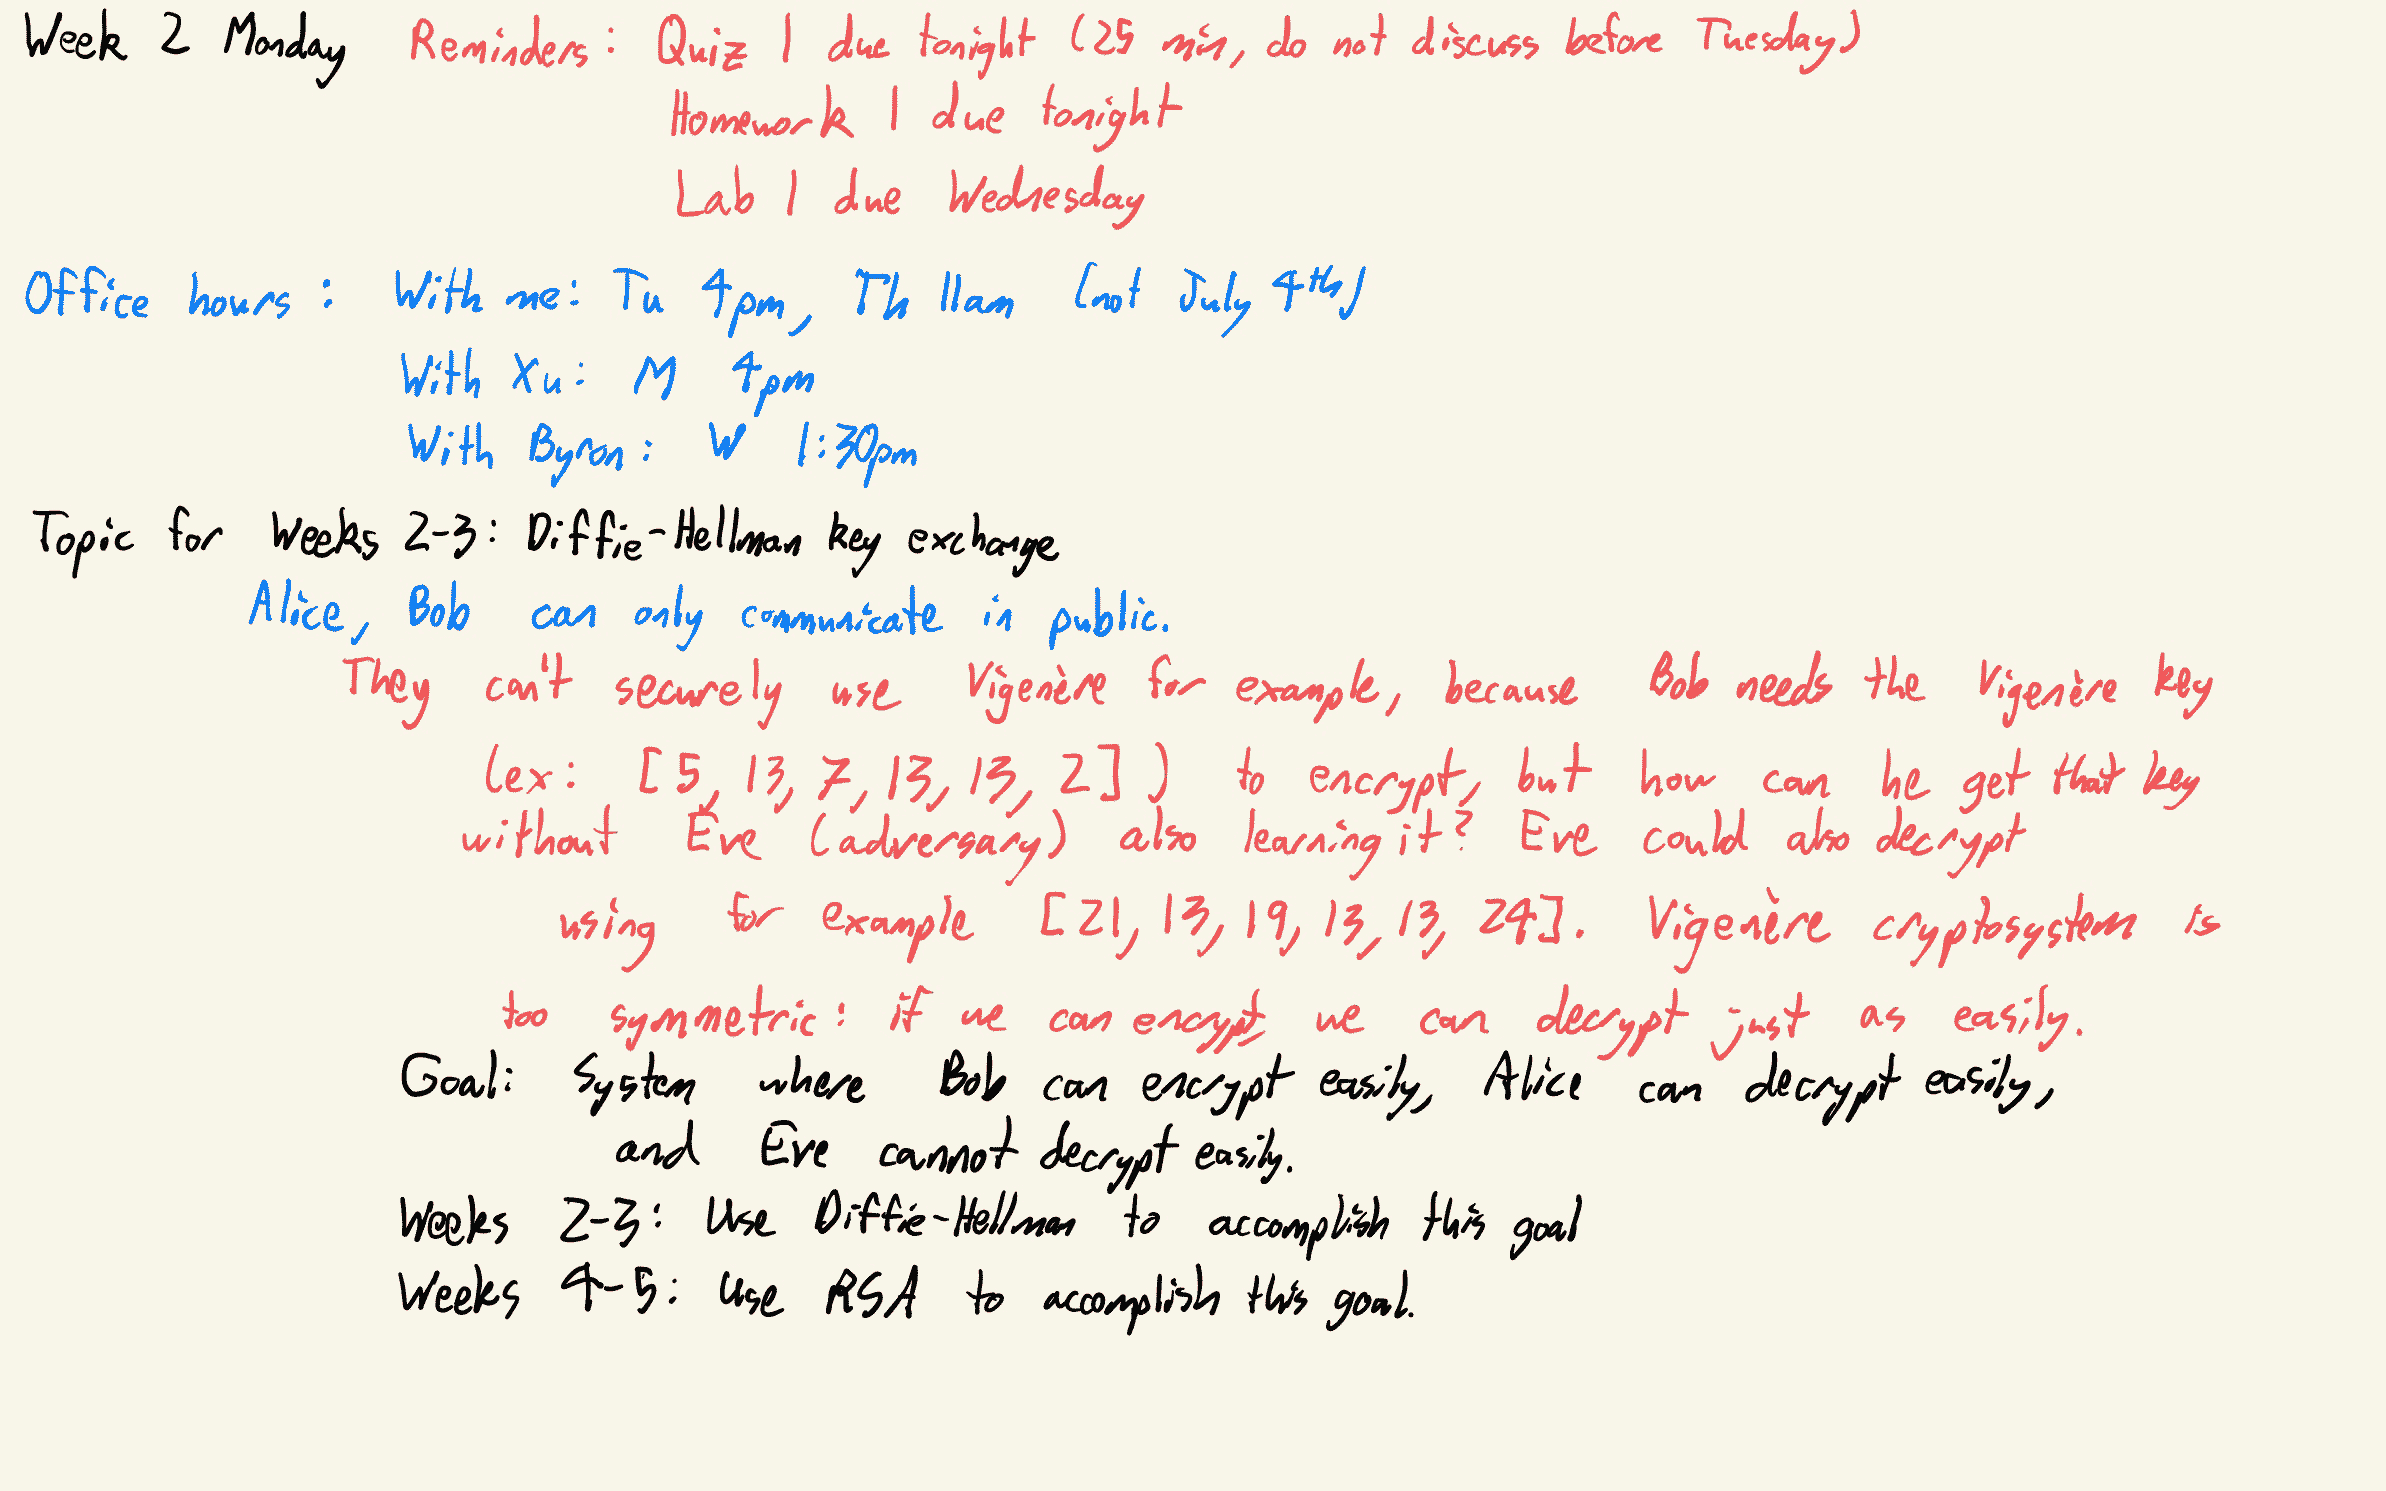 Week 2 Monday Reminders: Quiz 1 due tonight (25 min, do not discuss before Tuesday)
Homework 1 due tonight
Lab 1 due Wednesday
Office hours: With me: Tu 4pm, Th 11am (not July 4th)
With Xu: M 4pm
With Byron: W 1:30pm
Topic for Weeks 2-3: Diffie-Hellman key exchange
Alice, Bob can only communicate in public.
They can't securely use Vigenère for example, because Bob needs the Vigenère key
(ex: [5, 13, 7, 13, 13, 2]) to encrypt, but how can he get that key
without Eve (adversary) also learning it? Eve could also decrypt
using for example [21, 13, 19, 13, 13, 24]. Vigenère cryptosystem is
too symmetric: if we can encrypt, we can decrypt just as easily.
Goal: System where Bob can encrypt easily, Alice can decrypt easily,
and Eve cannot decrypt easily.
Weeks 2-3: Use Diffie-Hellman to accomplish this goal
Weeks 4-5: Use RSA to accomplish this goal.